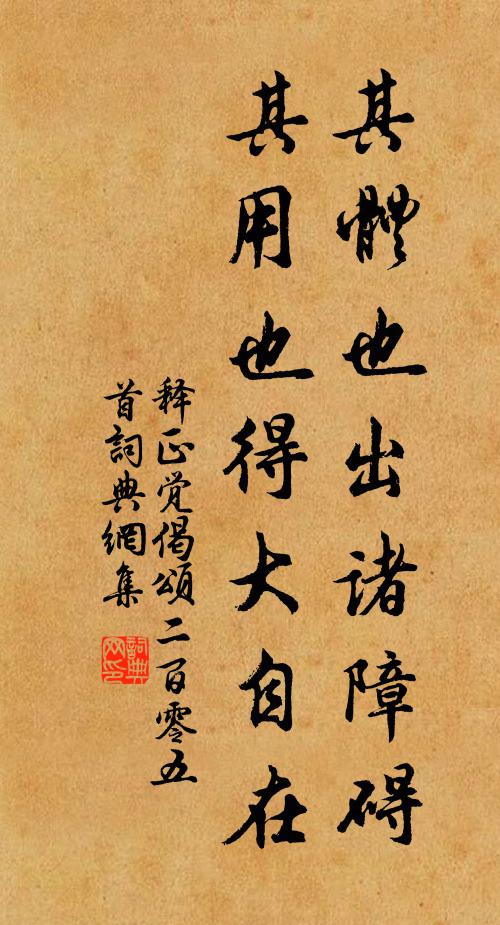 其體也出诸障碍
其用也得大自在
释正觉偈頌二百零五
首詞典網集
詞典網印